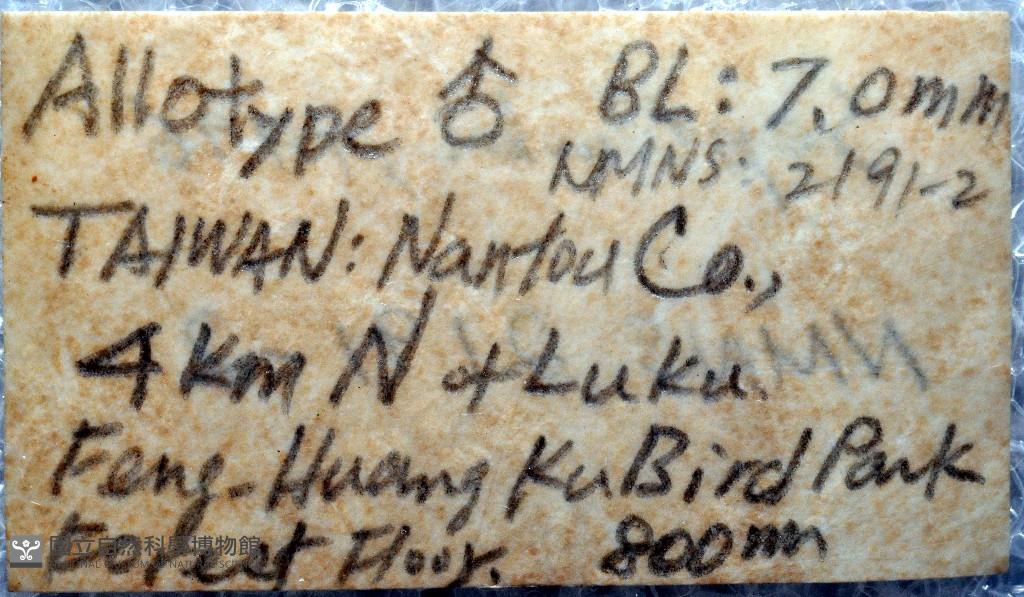 Allotype ♂ BL: 7.0mm
NMNS: 2191-2
TAIWAN: Nantou Co.,
4 Km N of Luku.
Feng-Huang Ku Bird Park
Forest Floor. 800m
國立自然科學博物館
NATIONAL MUSEUM OF NATURAL SCIENCE